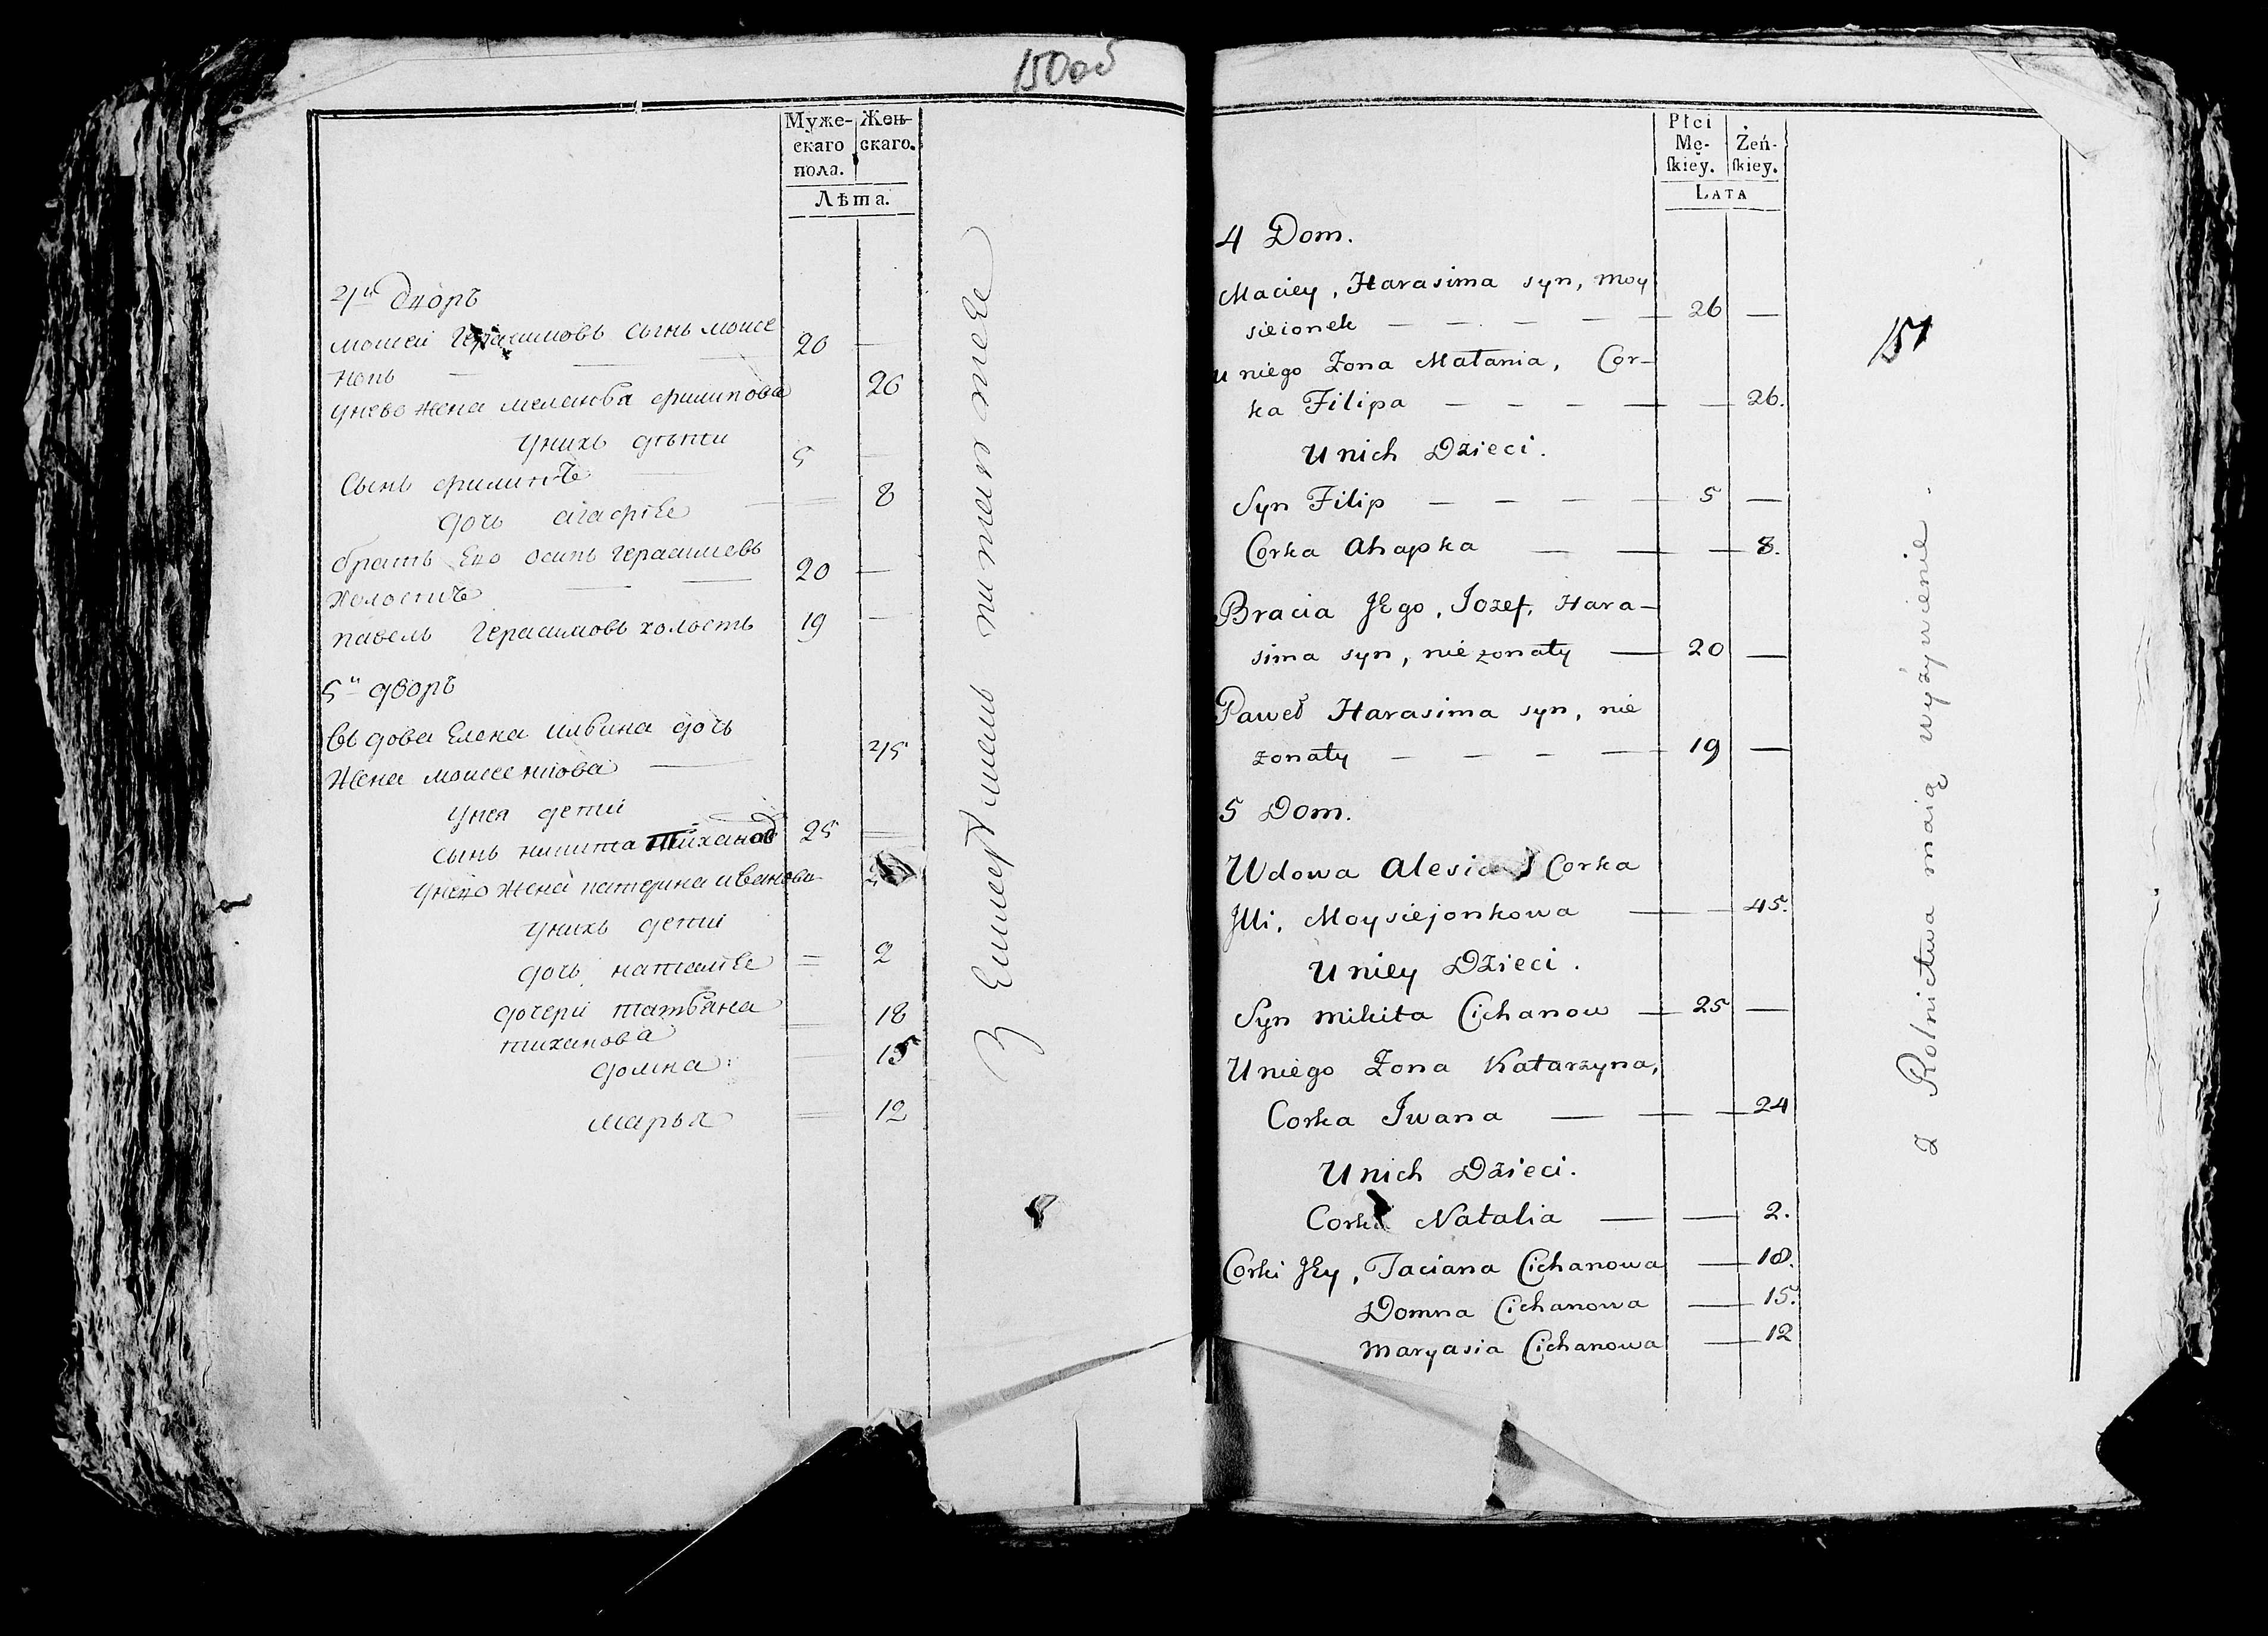 150об
Муже-
скаго
пола.
Жен-
скаго.
Лѣта.
4й дворъ
Мотей Герасимовъ сынъ Моисе
нонъ — — 20 —
унево жена Маланья Филипова 26
унихъ дѣти
Сынъ Филипъ 5 —
дочь Агафья — 8
братъ Ево Осипъ Герасимовъ
холостъ — — 20 —
павелъ Герасимовъ холостъ 19 —
5й дворъ
вдова Елена Ильина дочь
жена Моисеенкова — 45
унея дети
сынъ никита Тиханов 25 —
унево жена катерина иванова
унихъ дети
дочь наталья — 2
дочери татьяна — 18
тиханова
домна — 15
марья — 12
З Емледѣліемъ питаитеся
8
Płci
Mę-
ſkiey.
Żeń-
ſkiey.
LATA
151
4 Dom.
Maciey, Harasima syn, Moy
sieionek — — — — 26 —
u niego Zona Matania, Cor-
ka Filipa — — — — — 26.
U nich Dzieci.
Syn Filip — — — — 5 —
Corka Ahapka — — — 8.
Bracia JEgo, Jozef, Hara-
sima syn, nie zonaty — 20 —
Paweł Harasima syn, nie
zonaty — — — — 19 —
5 Dom.
Wdowa Alesia Corka
Jlli, Moysiejonkowa — — 45.
U niey Dzieci.
Syn Mikita Cichanow — 25 —
U niego Zona Katarzyna,
Corka Jwana — — — 24
U nich Dzieci.
Corka Natalia — — 2.
Corki JEy, Taciana Cichanowa — 18.
Domna Cichanowa — 15.
Maryasia Cichanowa — 12
z Rolnictwa maią wyżywienie.